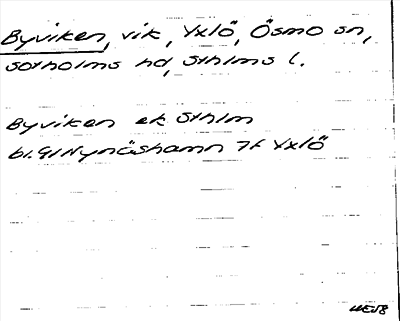 Byviken, vik, Yxlö, Ösmo sn,
Sotholms hd, Sthlms l.
Byviken ek Sthlm
bl.91 Nynäshamn 7f Yxlö